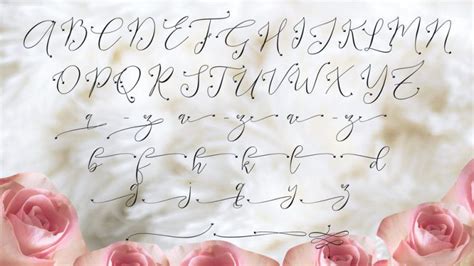 A B C D E F G H I J K L M N
O P Q R S T U V W X Y Z
a - z a - z a - z
b f h k l d
g j q y